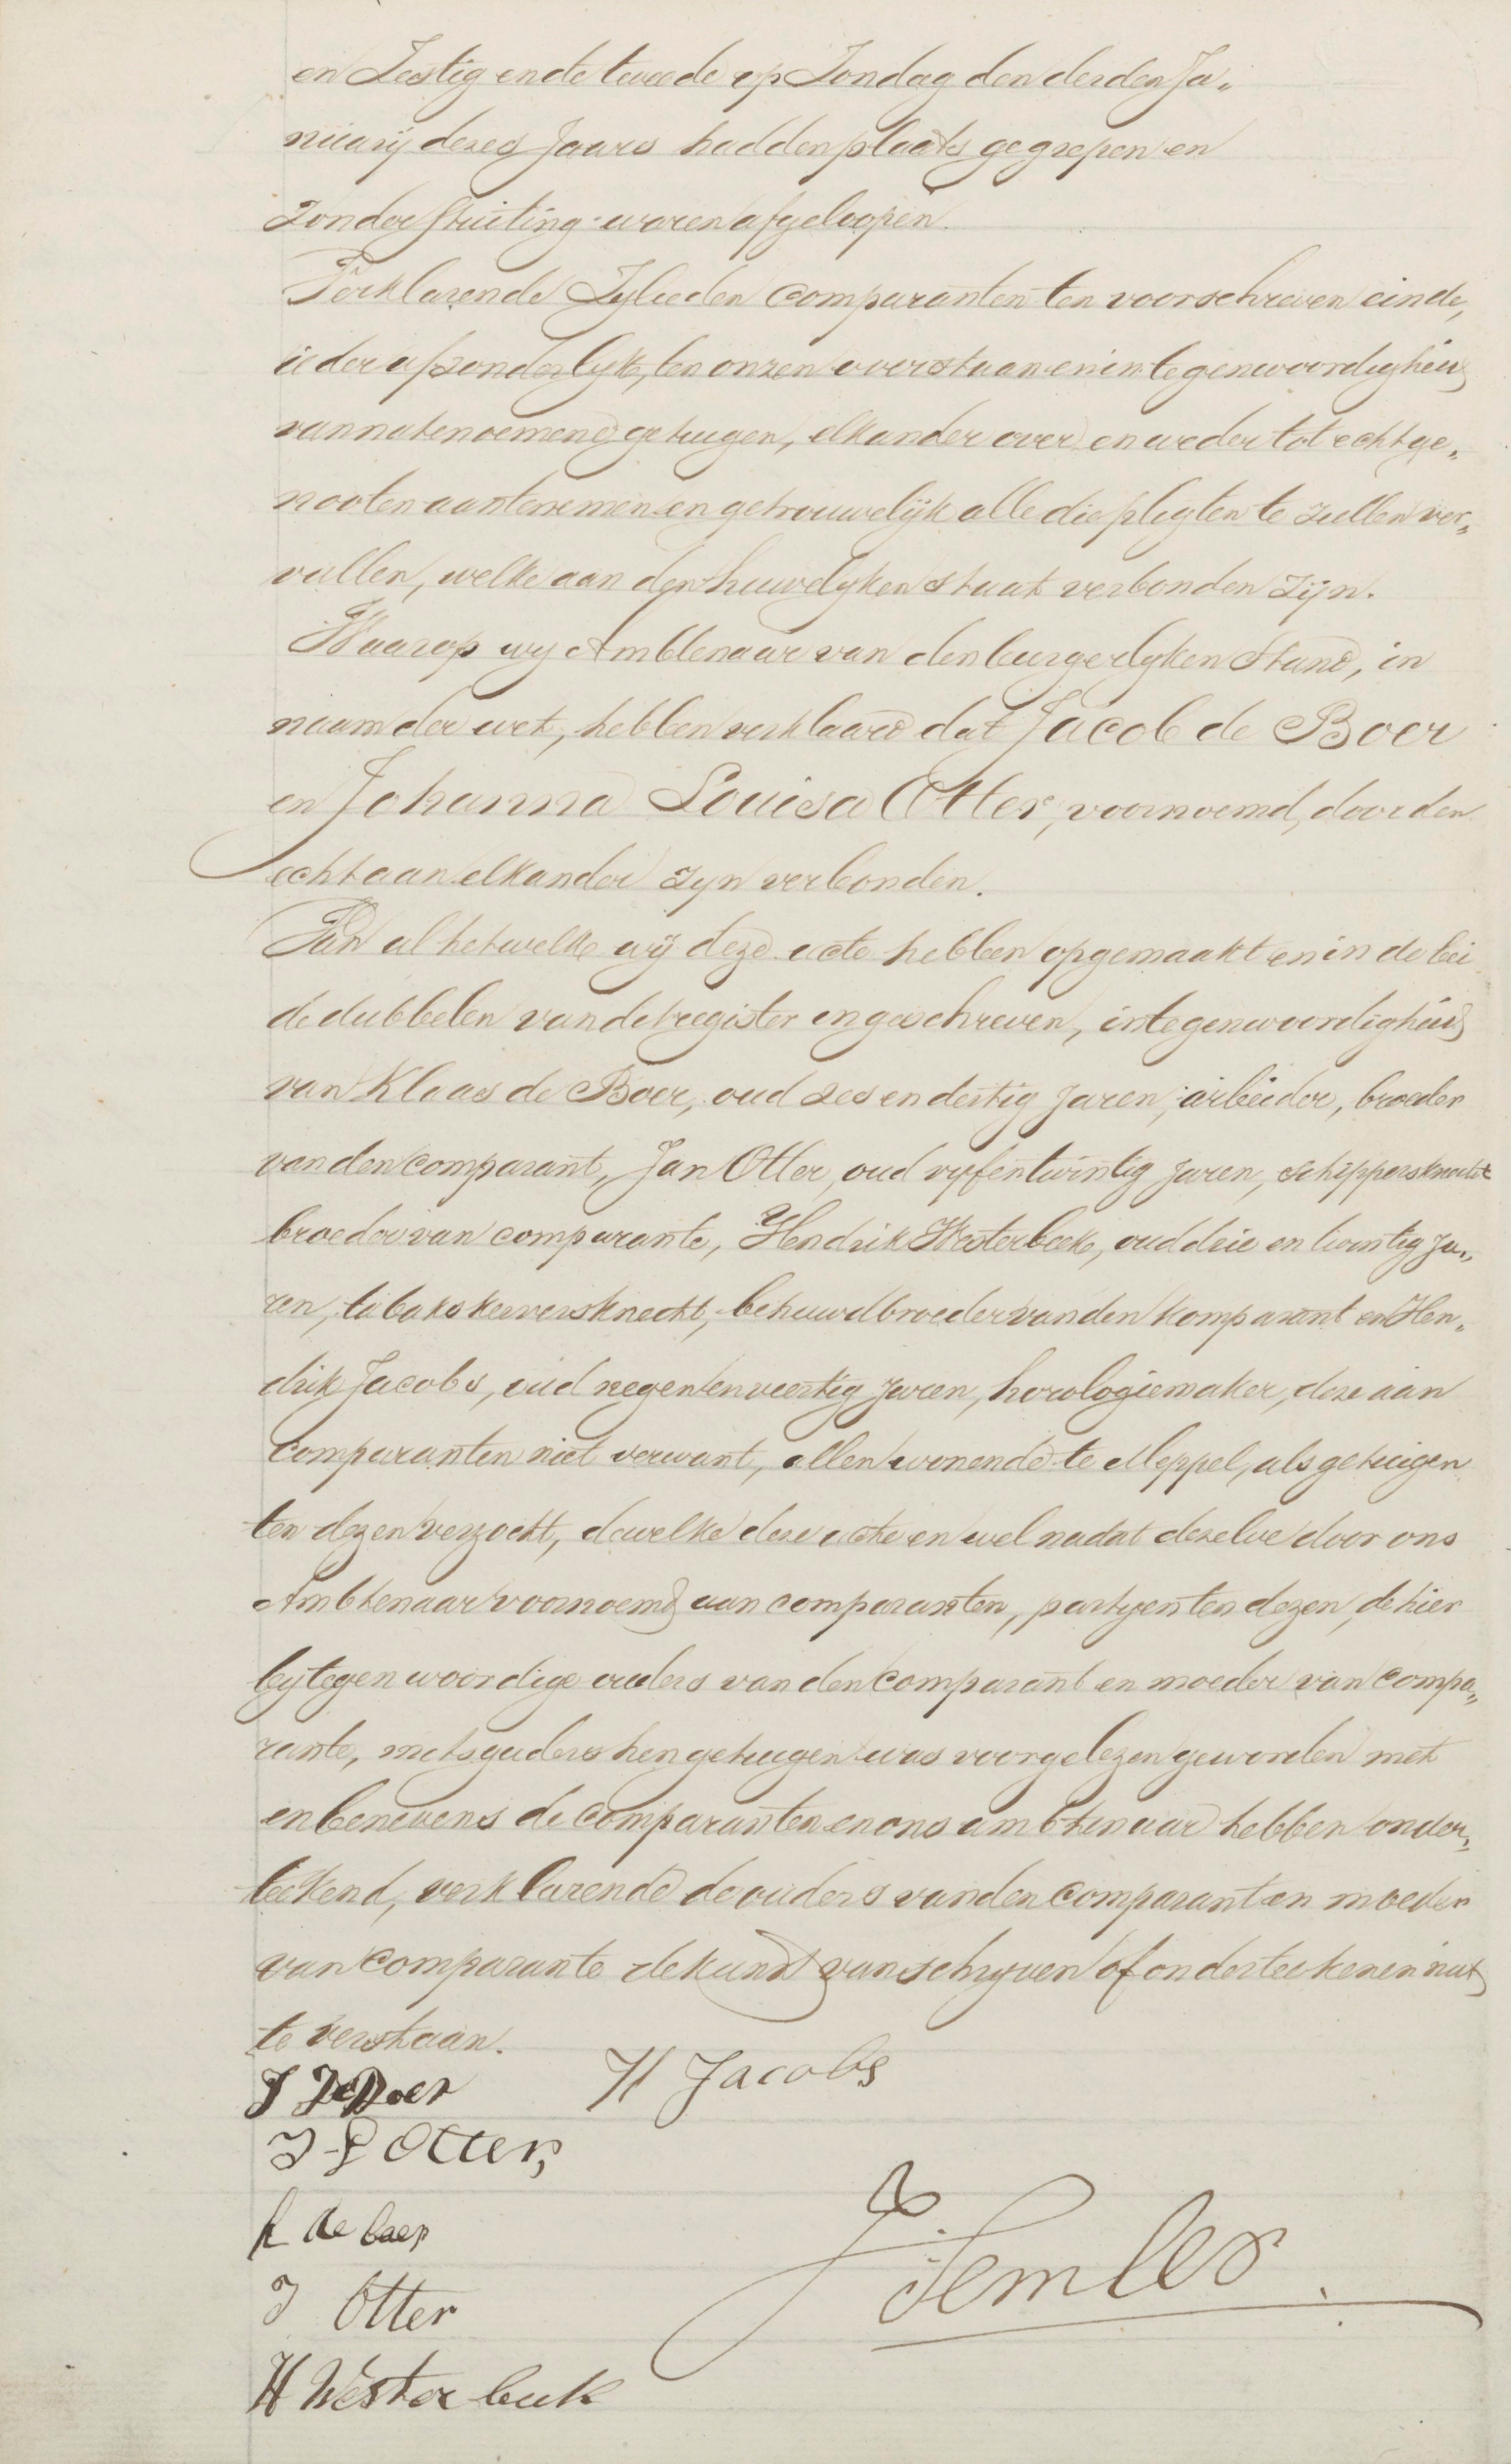 en Zestig en de tweede op Zondag den derden Ja„
nuarij dezes Jaars hadden plaats gegrepen en
zonder stuiting waren afgeloopen.
Verklarende Zylieden Comparanten ten voorschreven einde,
ieder afzonderlyk, ten onzen overstaan en in tegenwoordigheid
van natenoemene getuigen, elkander over en weder tot echtge„
nooten aantenemen en getrouwelijk alle die pligten te zullen ver„
vullen, welke aan den huwelyken staat verbonden zijn.
Waarop wy Ambtenaar van den burgerlyken Stand, in
naam der wet, hebben verklaard dat Jacob de Boer
en Johanna Louisa Otter, voornoemd, door den
echt aan elkander zyn verbonden.
Van al hetwelke wij deze acte hebben opgemaakt en in de bei
de dubbelen van het register ingeschreven, in tegenwoordigheid
van Klaas de Boer, oud zes en dertig Jaren, arbeider, broeder
van den Comparant, Jan Otter, oud vyfentwintig Jaren, schippersknecht
broeder van comparante, Hendrik Westerbeek, oud drie en twintig Ja„
ren, tabakskerversknecht, behuwdbroeder van den komparant en Hen„
drik Jacobs, oud negenenveertig Jaren, horologiemaker, deze aan
Comparanten niet verwant, allen wonende te Meppel, als getuigen
ten dezen verzocht, dewelke deze acte en wel nadat dezelve door ons
Ambtenaar voornoemd aan comparanten, partyen ten dezen, de hier
by tegenwoordige ouders van den Comparant en moeder van Compa„
rante, mitsgaders hen getuigen was voorgelezen geworden met
en benevens de Comparanten en ons ambtenaar hebben onder„
teekend, verklarende de ouders van den Comparant en moeder
van Comparante de kunst van schryven of onderteekenen niet
te verstaan.
J de Boer H Jacobs
J L Otter,
K de boer
J Otter
H Westerbeek